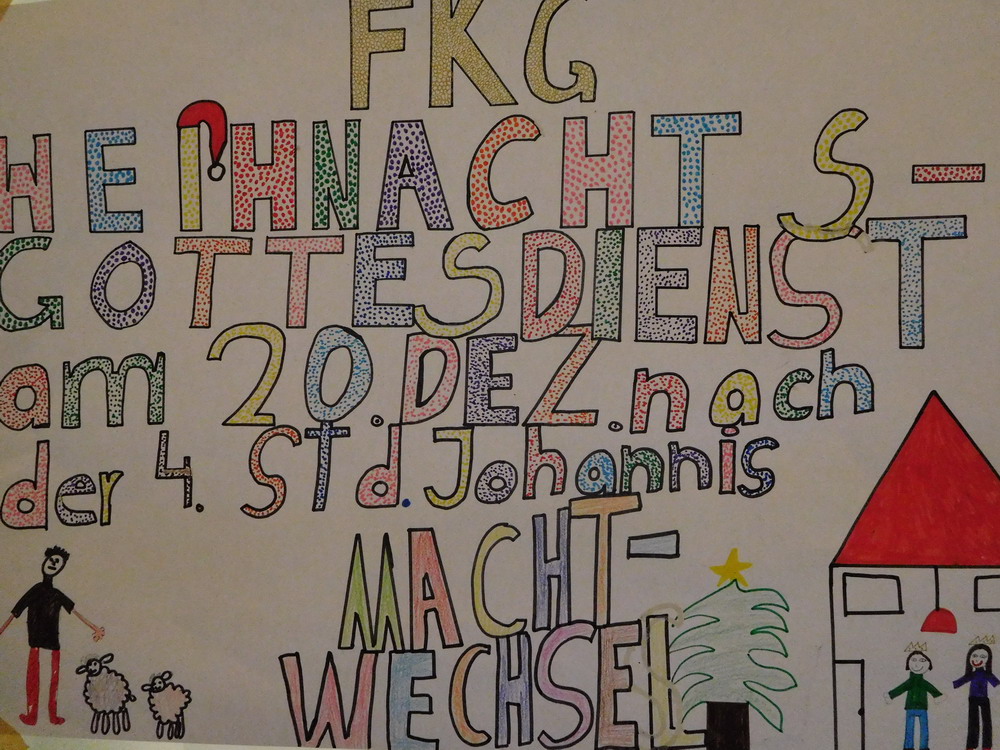 FKG
WEIHNACHTS-
GOTTESDIENST
am 20.DEZ.nach
der 4. STd.Johannis
MACHT-
WECHSEL